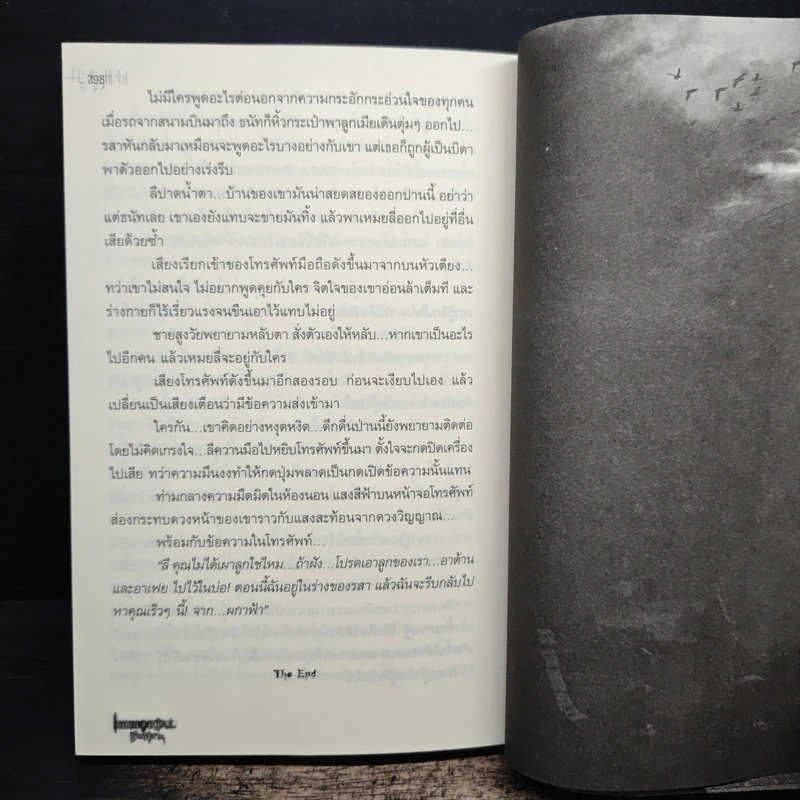 298
ไม่มีใครพูดอะไรต่อนอกจากความกระอักกระอ่วนใจของทุกคน
เมื่อรถจากสนามบินมาถึง ธนัทก็หิ้วกระเป๋าพาลูกเมียเดินดุ่มๆ ออกไป...
รสาหันกลับมาเหมือนจะพูดอะไรบางอย่างกับเขา แต่เธอก็ถูกผู้เป็นบิดา
พาตัวออกไปอย่างเร่งรีบ
ลีปาดน้ำตา...บ้านของเขามันน่าสยดสยองออกปานนี้ อย่าว่า
แต่ธนัทเลย เขาเองยังแทบจะขายมันทิ้ง แล้วพาเหมยลี่ออกไปอยู่ที่อื่น
เสียด้วยซ้ำ
เสียงเรียกเข้าของโทรศัพท์มือถือดังขึ้นมาจากบนหัวเตียง...
ทว่าเขาไม่สนใจ ไม่อยากพูดคุยกับใคร จิตใจของเขาอ่อนล้าเต็มที และ
ร่างกายก็ไร้เรี่ยวแรงจนขืนเอาไว้แทบไม่อยู่
ชายสูงวัยพยายามหลับตา สั่งตัวเองให้หลับ...หากเขาเป็นอะไร
ไปอีกคน แล้วเหมยลี่จะอยู่กับใคร
เสียงโทรศัพท์ดังขึ้นมาอีกสองรอบ ก่อนจะเงียบไปเอง แล้ว
เปลี่ยนเป็นเสียงเตือนว่ามีข้อความส่งเข้ามา
ใครกัน...เขาคิดอย่างหงุดหงิด...ดึกดื่นป่านนี้ยังพยายามติดต่อ
โดยไม่คิดเกรงใจ...ลีควานมือไปหยิบโทรศัพท์ขึ้นมา ตั้งใจจะกดปิดเครื่อง
ไปเสีย ทว่าความมึนงงทำให้กดปุ่มพลาดเป็นกดเปิดข้อความนั้นแทน
ท่ามกลางความมืดมิดในห้องนอน แสงสีฟ้าบนหน้าจอโทรศัพท์
ส่องกระทบดวงหน้าของเขาราวกับแสงสะท้อนจากดวงวิญญาณ...
พร้อมกับข้อความในโทรศัพท์...
“ลี คุณไม่ได้เผาลูกใช่ไหม...ถ้าฝัง...โปรดเอาลูกของเรา...อาต้าน
และอาเฟย ไปไว้ในบ่อ! ตอนนี้ฉันอยู่ในร่างของรสา แล้วฉันจะรีบกลับไป
หาคุณเร็วๆ นี้! จาก...ผกาฟ้า”
The End